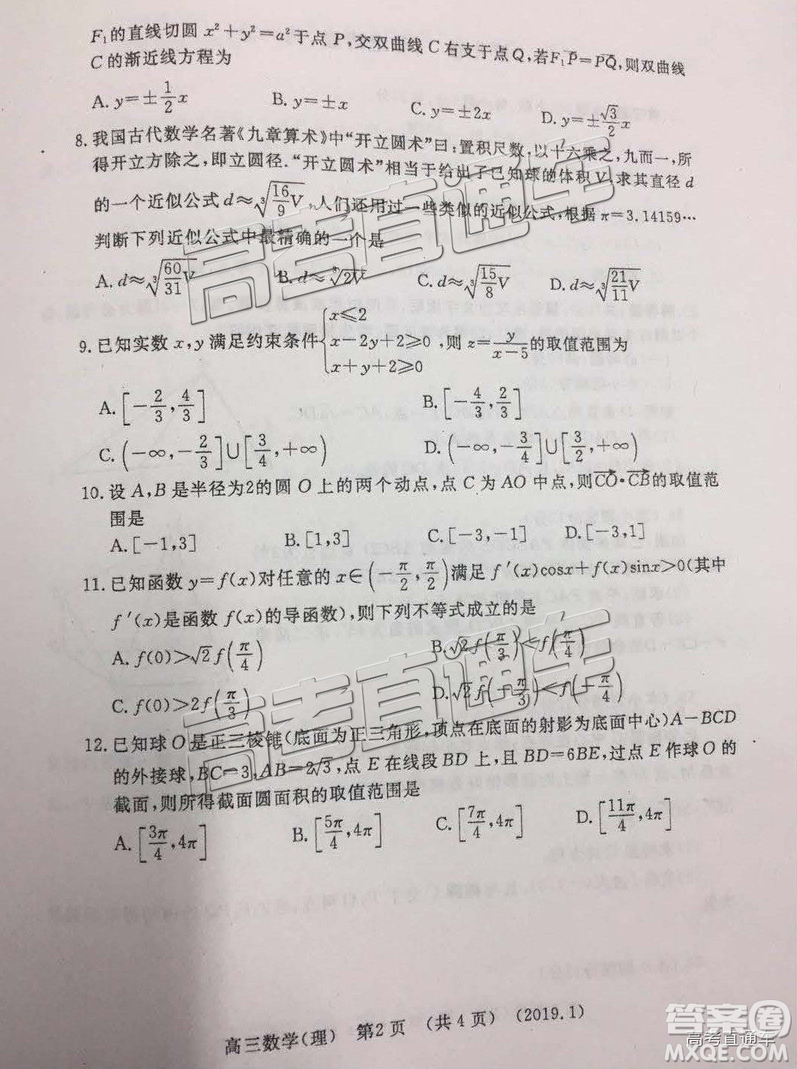 F₁的直线切圆 x²+y²=a²于点 P,交双曲线 C 右支于点 Q,若F₁P=PQ,则双曲线
C 的渐近线方程为
A. y=±1/2x B. y=±x C. y=±2x D. y=±√3/2x
8. 我国古代数学名著《九章算术》中“开立圆术”曰:置积尺数,以十六乘之,九而一,所
得开立方除之,即立圆径.“开立圆术”相当于给出了已知球的体积 V,求其直径 d
的一个近似公式 d≈∛(16/9 V),人们还用过一些类似的近似公式,根据 π=3.14159…
判断下列近似公式中最精确的一个是
A. d≈∛(60/31 V) B. d≈∛(2V) C. d≈∛(15/8 V) D. d≈∛(21/11 V)
9. 已知实数 x,y 满足约束条件{x≤2 x-2y+2≥0 x+y+2≥0,则 z=y/(x-5)的取值范围为
A. [-2/3,4/3] B. [-4/3,2/3]
C. (-∞,-2/3]∪[3/4,+∞) D. (-∞,-3/4]∪[3/2,+∞)
10. 设 A,B 是半径为2的圆 O 上的两个动点,点 C 为 AO 中点,则CO·CB的取值范
围是
A. [-1,3] B. [1,3] C. [-3,-1] D. [-3,1]
11. 已知函数 y=f(x)对任意的 x∈(-π/2,π/2)满足 f′(x)cosx+f(x)sinx>0(其中
f′(x)是函数 f(x)的导函数),则下列不等式成立的是
A. f(0)>√2f(π/4) B. √2f(π/3)<f(π/4)
C. f(0)>2f(π/3) D. √2f(-π/3)<f(-π/4)
12. 已知球 O 是正三棱锥(底面为正三角形,顶点在底面的射影为底面中心)A-BCD
的外接球,BC=3,AB=2√3,点 E 在线段 BD 上,且 BD=6BE,过点 E 作球 O 的
截面,则所得截面圆面积的取值范围是
A. [3π/4,4π] B. [5π/4,4π] C. [7π/4,4π] D. [11π/4,4π]
高三数学(理) 第2页 (共4页) (2019.1)
高考直通车
高考直通车
答案圈
高考直通车
MXQE.COM